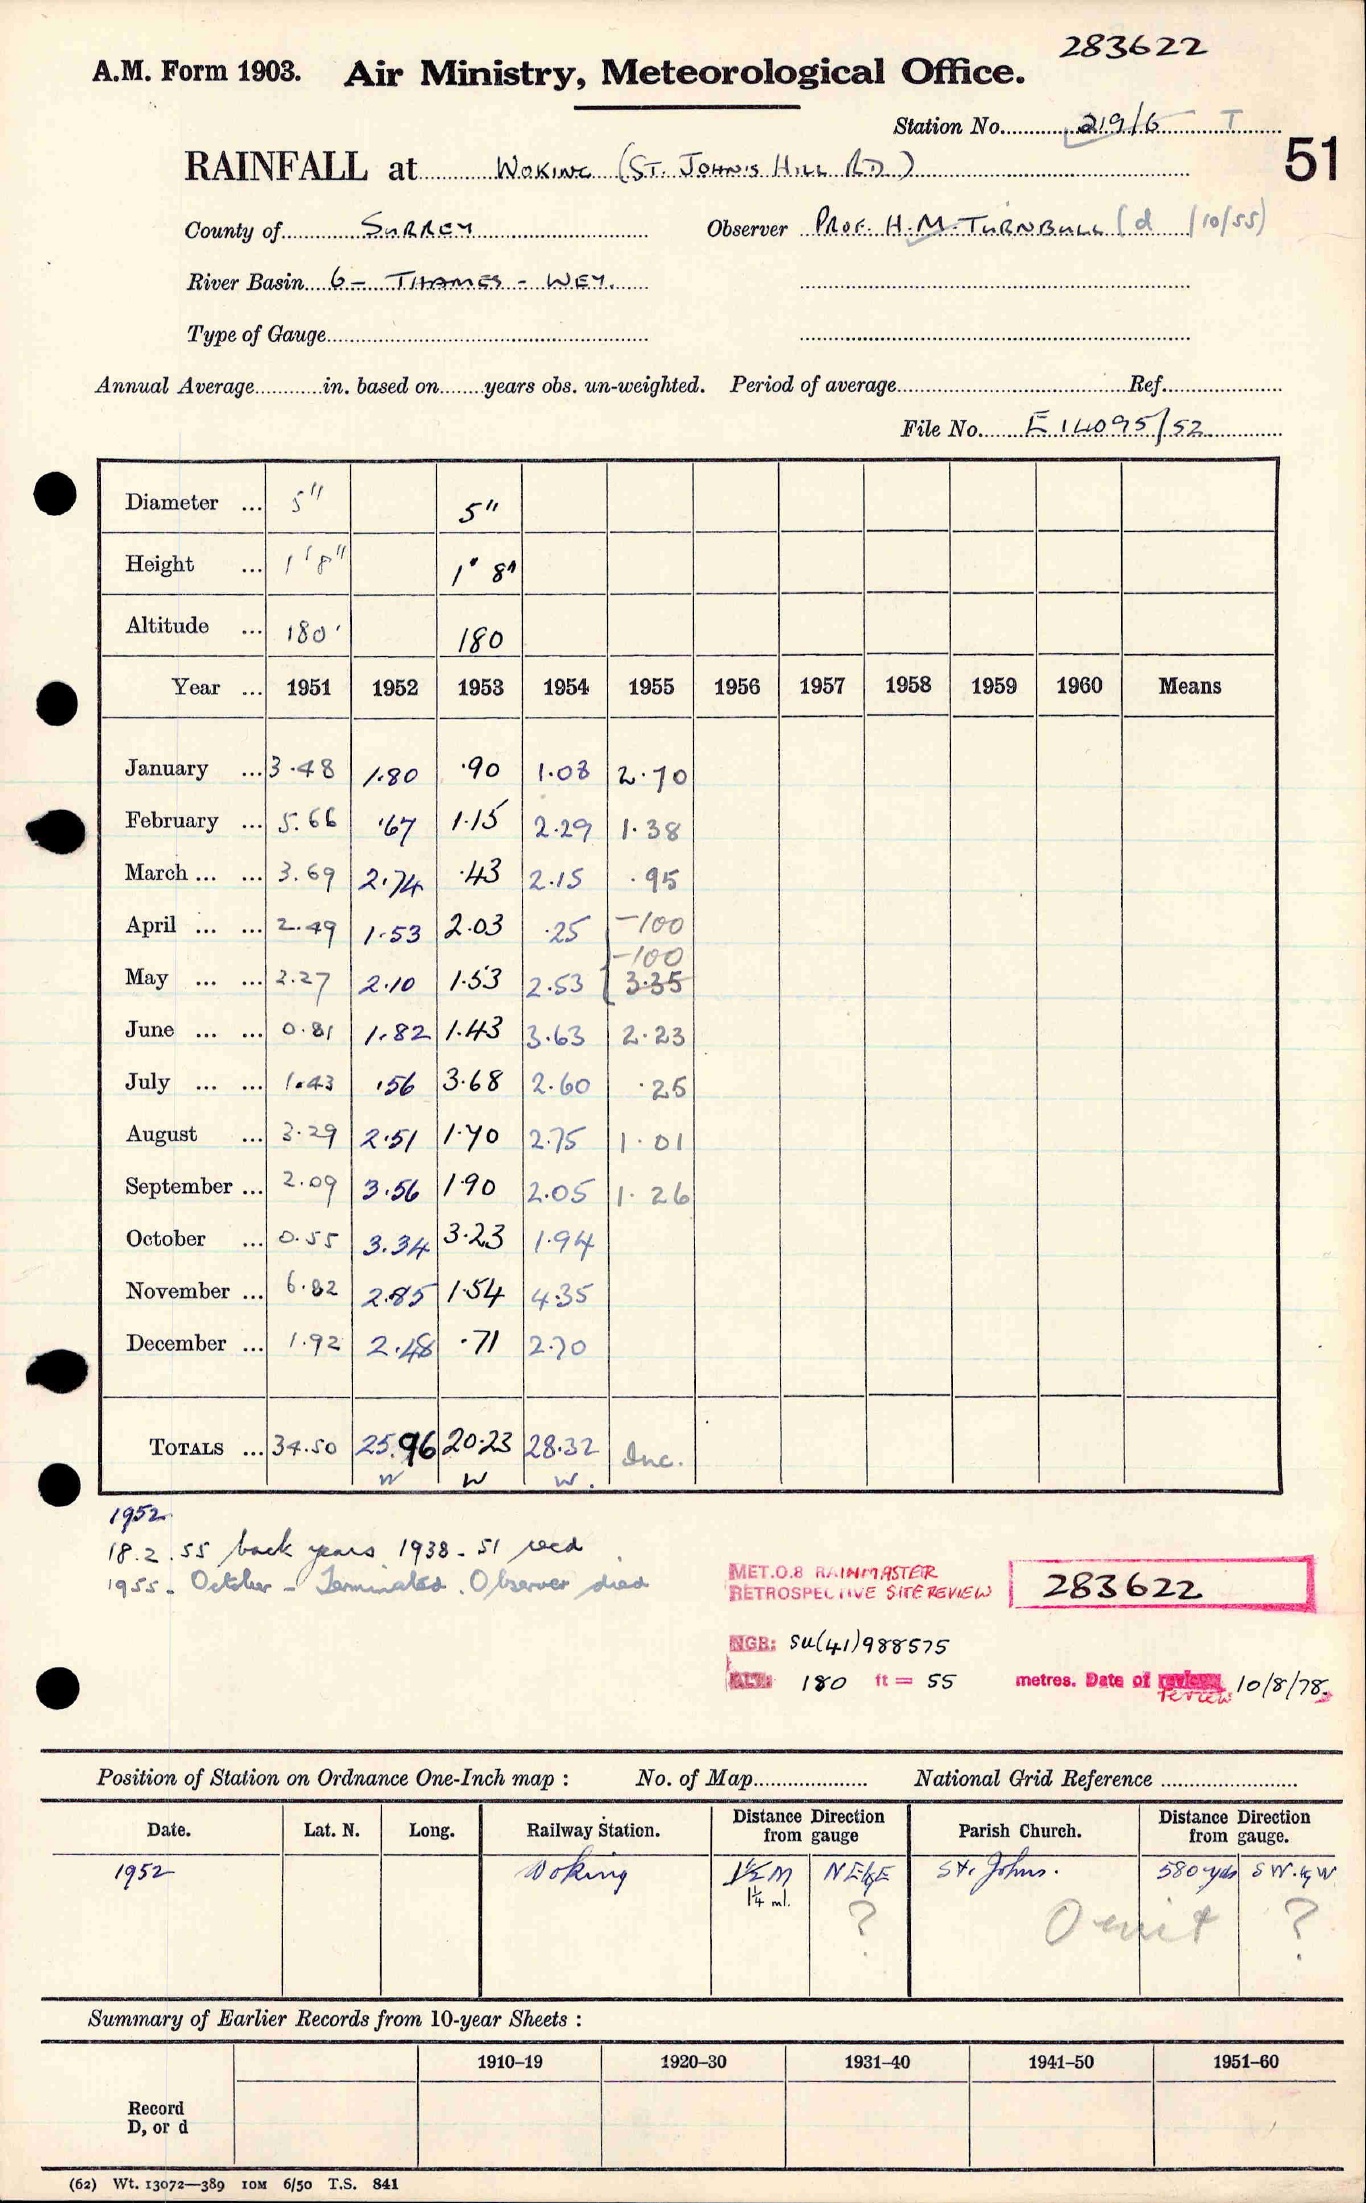 283622
A.M. Form 1903. Air Ministry, Meteorological Office.
Station No. 219/6 T
51
RAINFALL at WOKING (ST. JOHN'S HILL RD)
County of SURREY Observer PROF. H.M. TURNBULL (d /10/55)
River Basin 6 - THAMES - WEY.
Type of Gauge
Annual Average in. based on years obs. un-weighted. Period of average Ref.
File No. E14095/52
Diameter ... 5" 5"
Height ... 1'8" 1' 8"
Altitude ... 180' 180
Year ... 1951 1952 1953 1954 1955 1956 1957 1958 1959 1960 Means
January ... 3.48 1.80 .90 1.08 2.70
February ... 5.66 .67 1.15 2.29 1.38
March ... ... 3.69 2.74 .43 2.15 .95
April ... ... 2.49 1.53 2.03 .25 -100
-100
May ... ... 2.27 2.10 1.53 2.53 3.35
June ... ... 0.81 1.82 1.43 3.63 2.23
July ... ... 1.43 .56 3.68 2.60 .25
August ... 3.29 2.51 1.70 2.75 1.01
September ... 2.09 3.56 1.90 2.05 1.26
October ... 0.55 3.34 3.23 1.94
November ... 6.82 2.85 1.54 4.35
December ... 1.92 2.48 .71 2.70
TOTALS ... 34.50 25.96 20.23 28.32 Inc.
W W W.
1952
18.2.55 back years 1938-51 recd
1955 - October - Terminated. Observer died
MET.O.8 RAINMASTER
RETROSPECTIVE SITE REVIEW 283622
NGR: SU(41)988575
ALT: 180 ft = 55 metres. Date of review 10/8/78.
Position of Station on Ordnance One-Inch map : No. of Map National Grid Reference
Date. Lat. N. Long. Railway Station. Distance Direction from gauge Parish Church. Distance Direction from gauge.
1952 Woking 1½ M NE by E St. Johns. 580 yds SW. by W
1¼ ml.
? Omit ?
Summary of Earlier Records from 10-year Sheets :
1910–19 1920–30 1931–40 1941–50 1951–60
Record
D, or d
(62) Wt. 13072—389 10M 6/50 T.S. 841